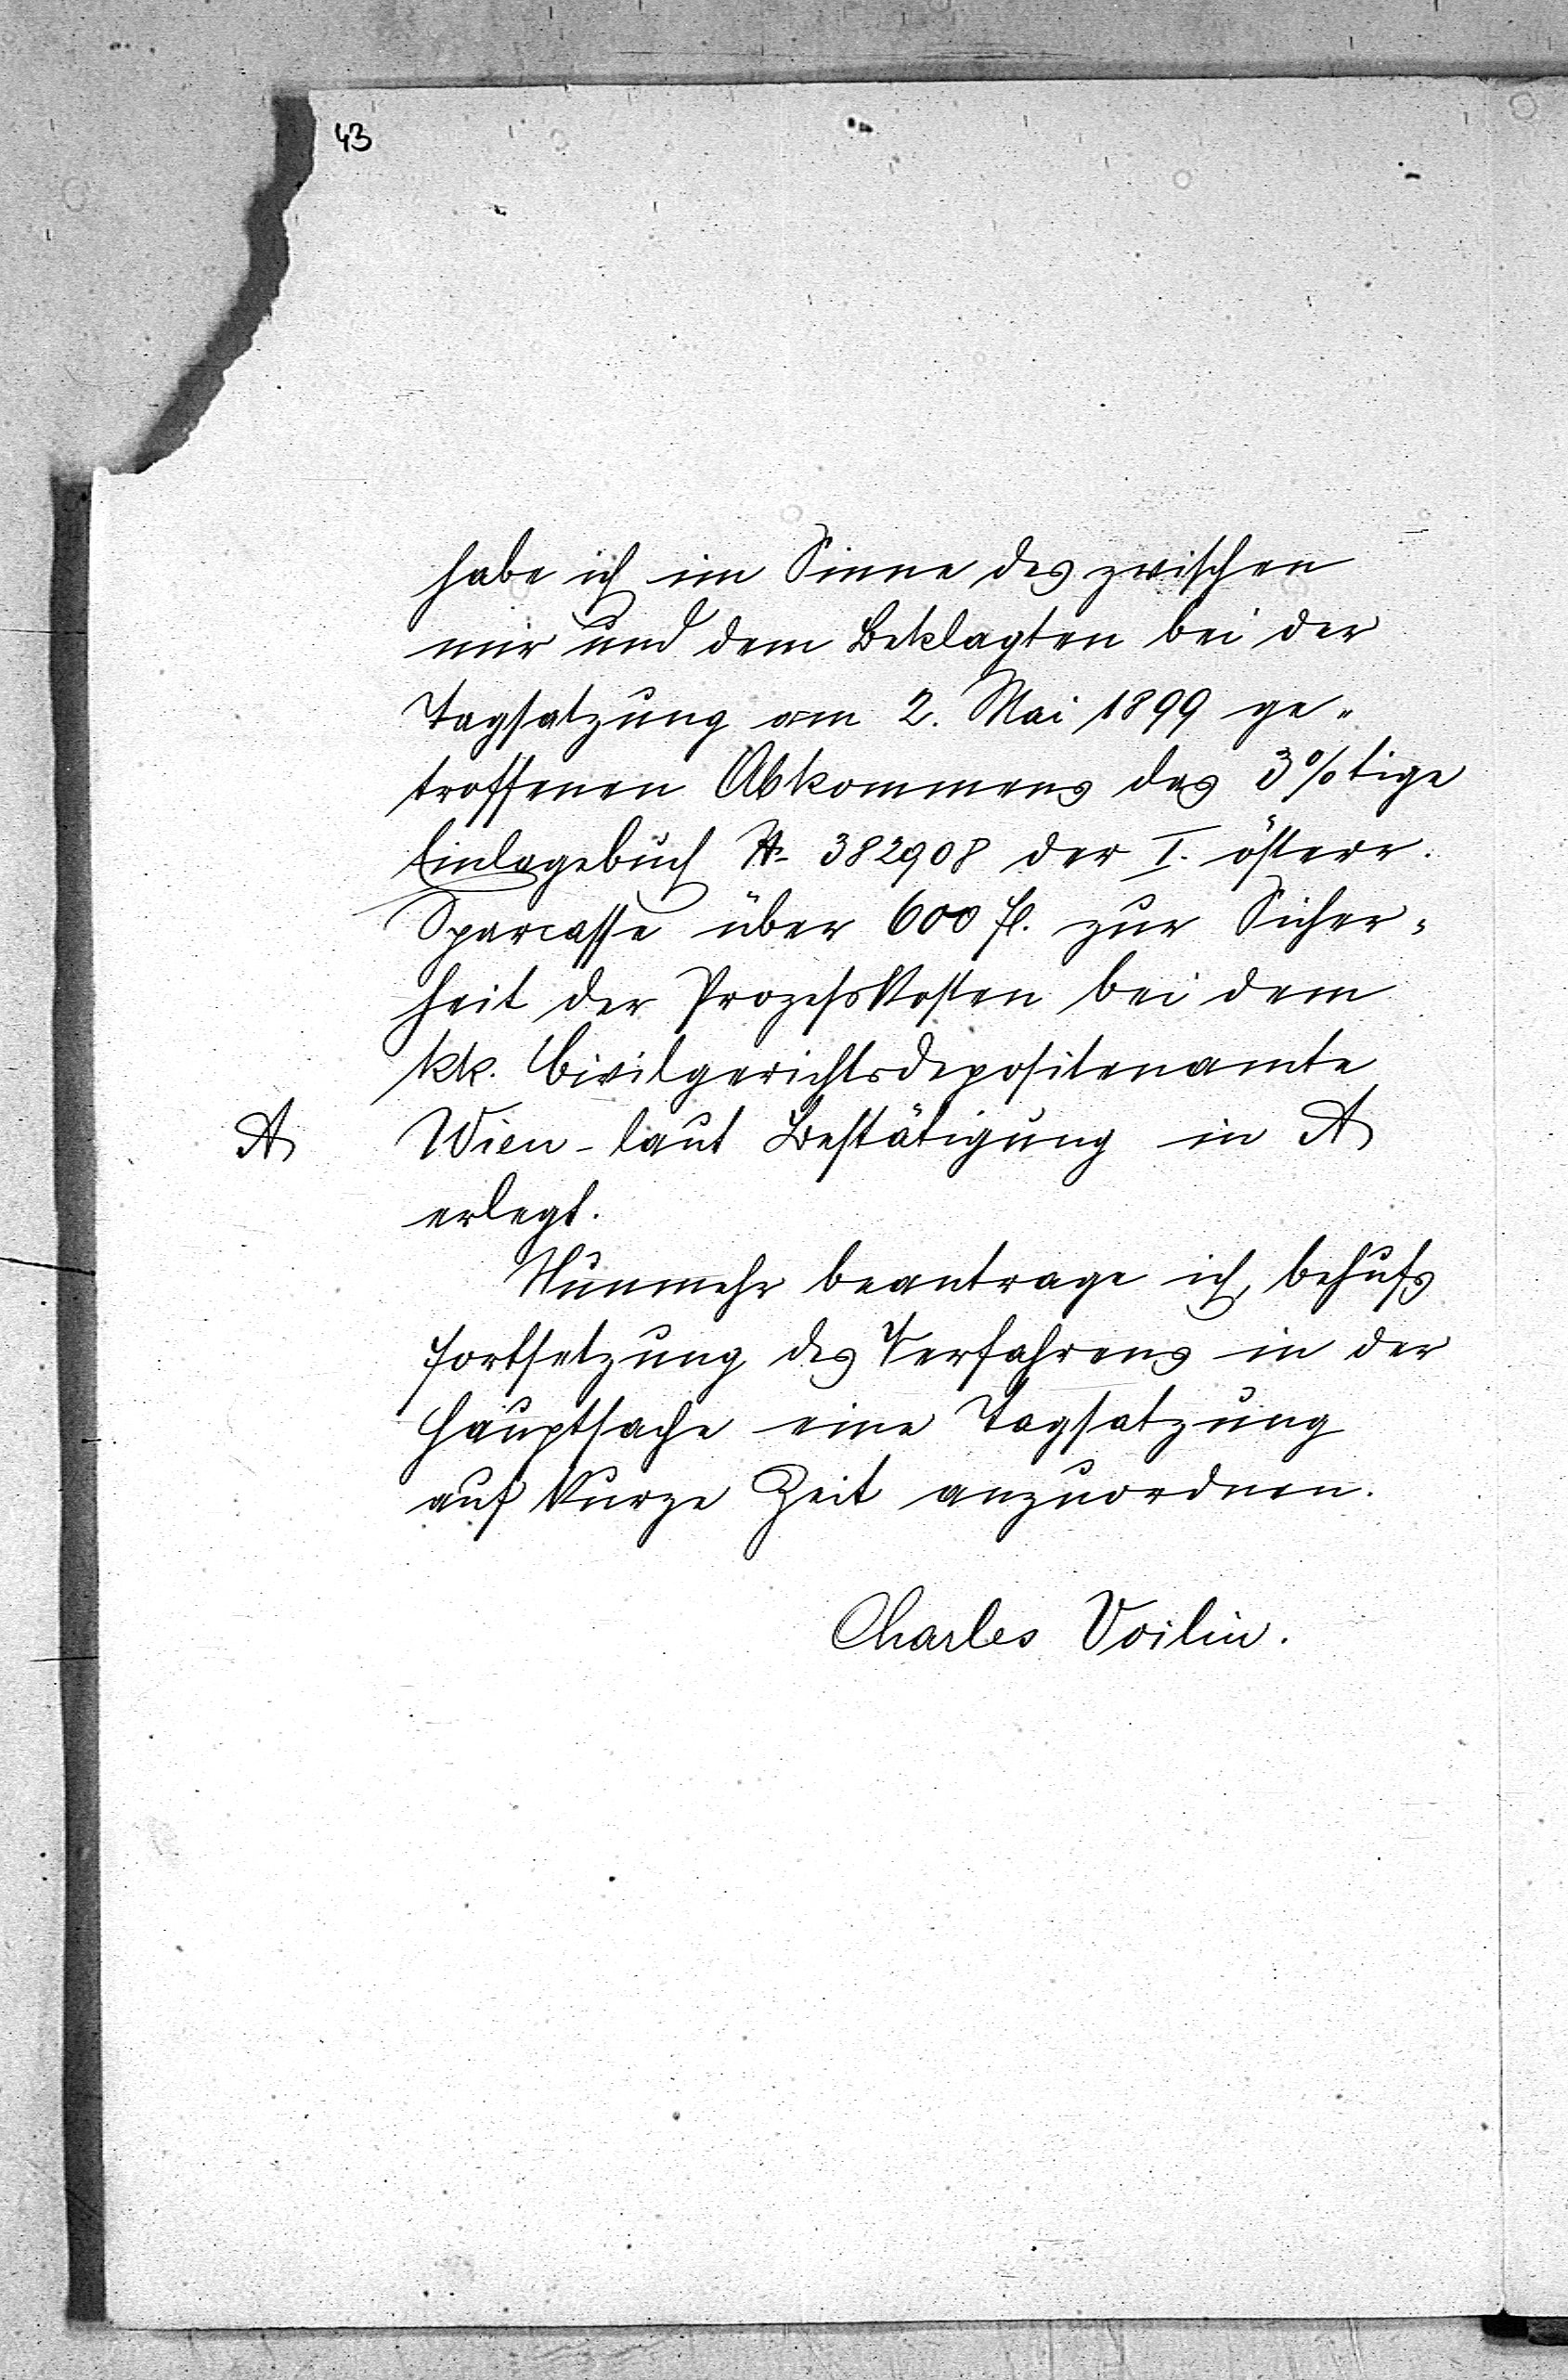 43
habe ich im Sinne des zwischen
mir und dem Beklagten bei der
Tagsatzung am 2. Mai 1899 ge-
troffenen Abkommens das 3%tige
Einlagebuch No 382908 der I. österr.
Sparcasse über 600 fl. zur Sicher-
heit der Prozeßkosten bei dem
kk. Civilgerichtsdepositenamte
A Wien - laut Bestätigung in A
erlegt.
Nunmehr beantrage ich, behufs
Fortsetzung des Verfahrens in der
Hauptsache eine Tagsatzung
auf kurze Zeit anzuordnen.
Charles Voilin.